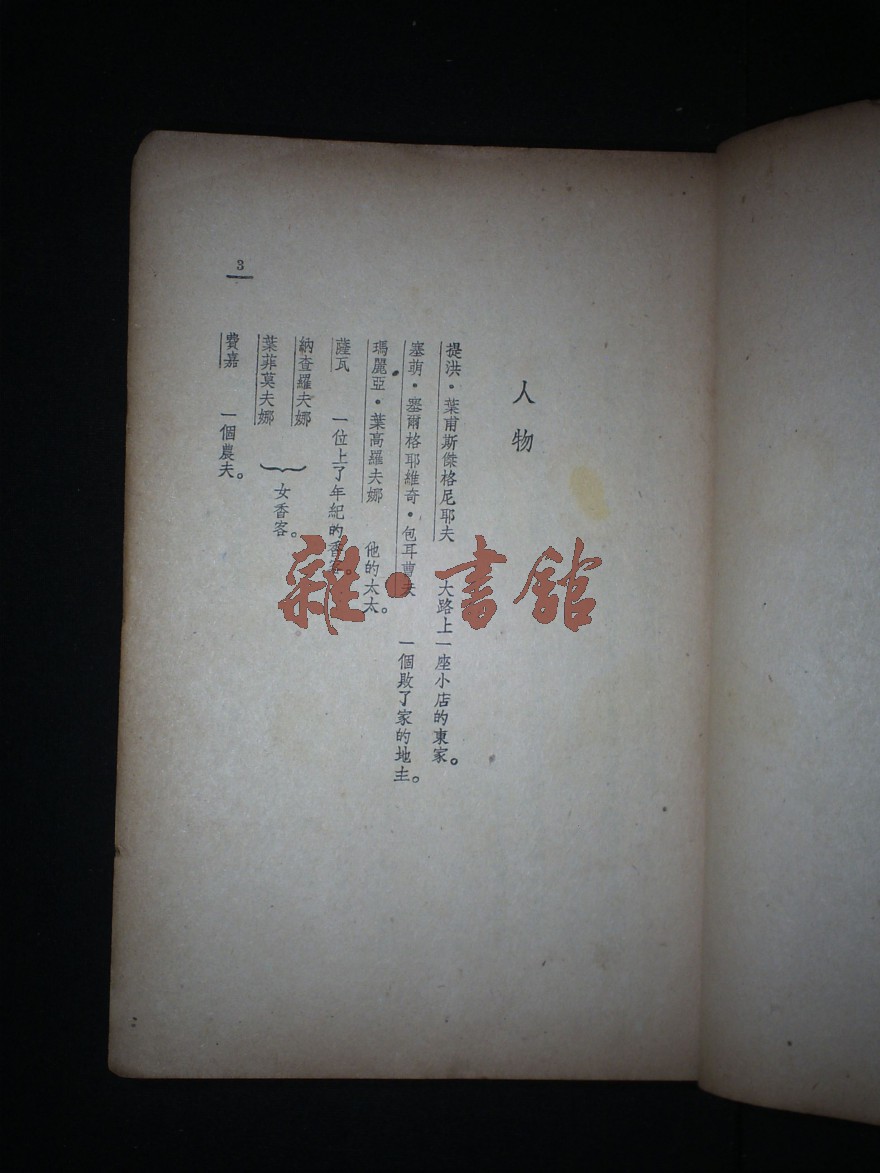 人物
提洪·葉甫斯傑格尼耶夫　大路上一座小店的東家。
塞萌·塞爾格耶維奇·包耳曹夫　一個敗了家的地主。
瑪麗亞·葉高羅夫娜　他的太太。
薩瓦　一位上了年紀的香客。
納查羅夫娜
葉菲莫夫娜
女香客。
費嘉　一個農夫。
3
雜·書館